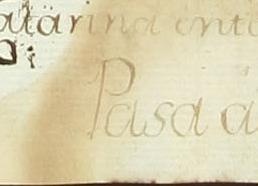 atarina ent
Pasa a